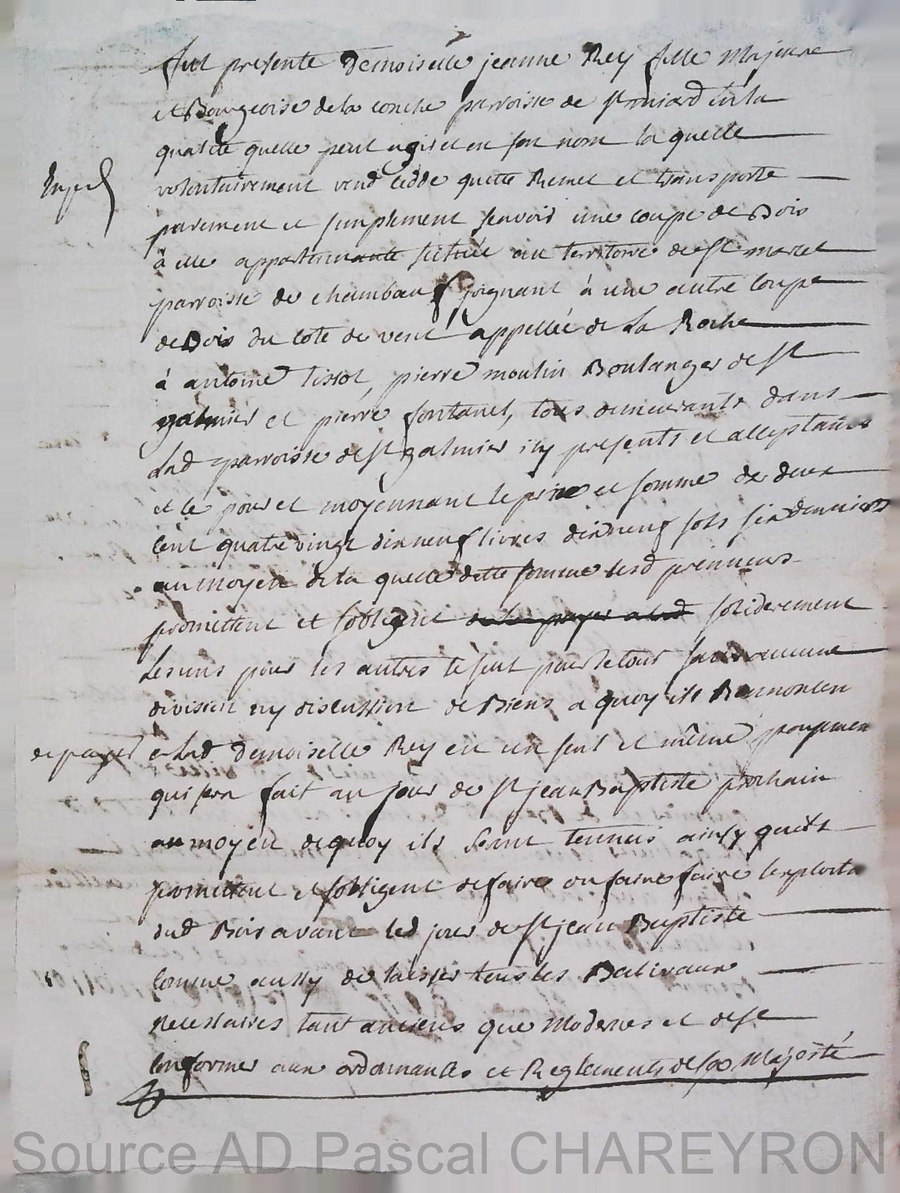 fut presente Demoiselle jeanne Rey fille Majeure
et Bourgeoise de la conche parroisse de st miard en la
qualité quelle peut agir et en son nom la quelle
volontairement vend cedde quitte Remet et transporte
purement et simplement sçavoir une coupe de Bois
à elle appartenante scituée au territoire de st maret
parroisse de chambeuf joignant à une autre coupe
de Bois du coté de vent appellée de La Roche
à antoine tissot, pierre moulin Boulanger de st
galmier et pierre fontanel, tous demeurants dans
Lad parroisse de st galmier icy presents et acceptants
et ce pour et moyennant le prix et somme de deux
cent quatre vingt dix neuf livres dix neuf sols six deniers
au moyen de la quelle dette somme lesd preneurs
promettent et sobligent solidairement
Les uns pour les autres le seul pour le tout sans aucune
division ny discussion de Biens a quoy ils Renoncent
de payer a lad Demoiselle Rey en un seul et même payement
qui sera fait au jour de st jean Baptiste prochain
au moyen de quoy ils seront tennus ainsy quils
promettent et sobligent de faire ou faire faire lexploita
dud Bois avant led jour de st jean Baptiste
comme aussy de laisser tous les Baliveaux
necessaires tant anciens que Modernes et de se
conformer aux ordonnances et Reglements de sa Majesté
Source AD Pascal CHAREYRON